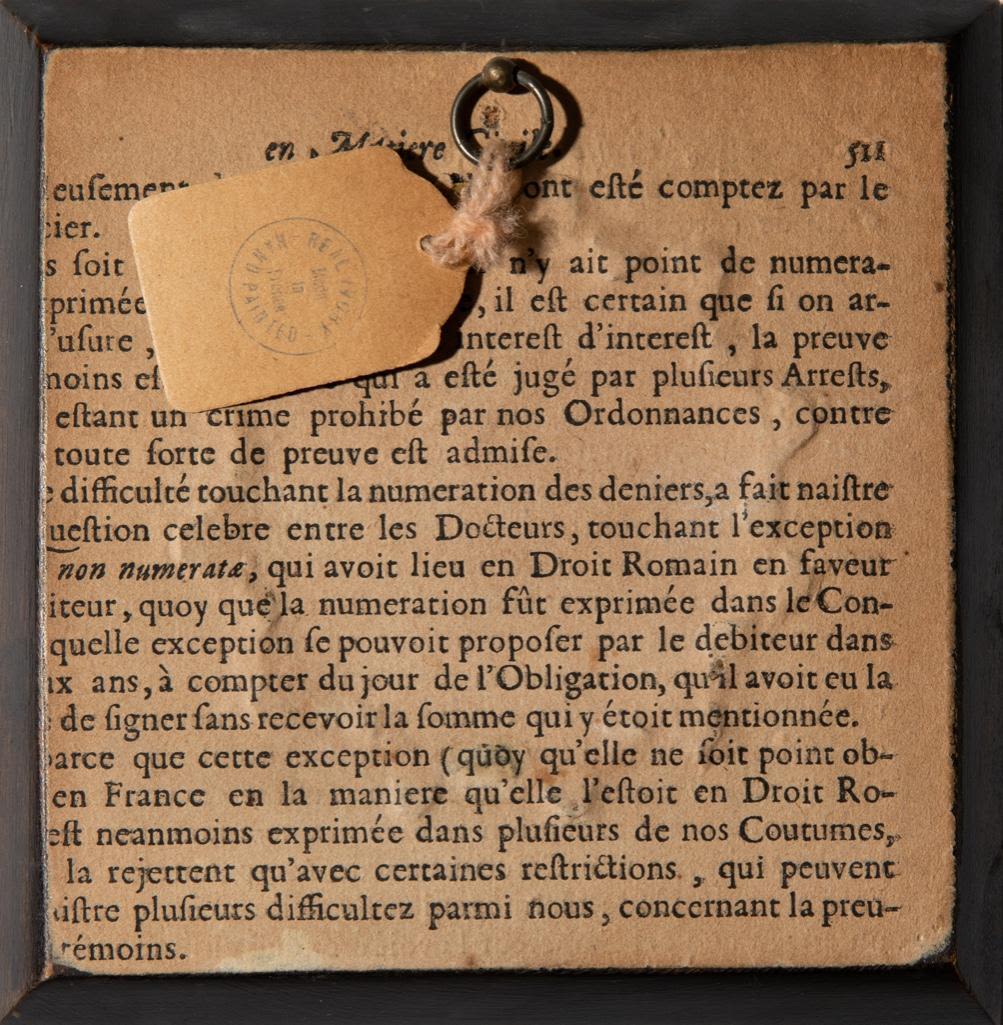 en Matiere Civile. 511
eusement ont esté comptez par le
cier.
s soit n'y ait point de numera-
primée , il est certain que si on ar-
'usure , interest d'interest , la preuve
moins es qui a esté jugé par plusieurs Arrests,
estant un crime prohibé par nos Ordonnances , contre
toute sorte de preuve est admise.
e difficulté touchant la numeration des deniers, a fait naistre
uestion celebre entre les Docteurs, touchant l'exception
non numeratæ, qui avoit lieu en Droit Romain en faveur
iteur, quoy que la numeration fût exprimée dans le Con-
quelle exception se pouvoit proposer par le debiteur dans
ux ans, à compter du jour de l'Obligation, qu'il avoit eu la
de signer sans recevoir la somme qui y étoit mentionnée.
parce que cette exception ( quoy qu'elle ne soit point ob-
en France en la maniere qu'elle l'estoit en Droit Ro-
est neanmoins exprimée dans plusieurs de nos Coutumes,
la rejettent qu'avec certaines restrictions , qui peuvent
aistre plusieurs difficultez parmi nous, concernant la preu-
témoins.
HAND PAINTED
REAL
in